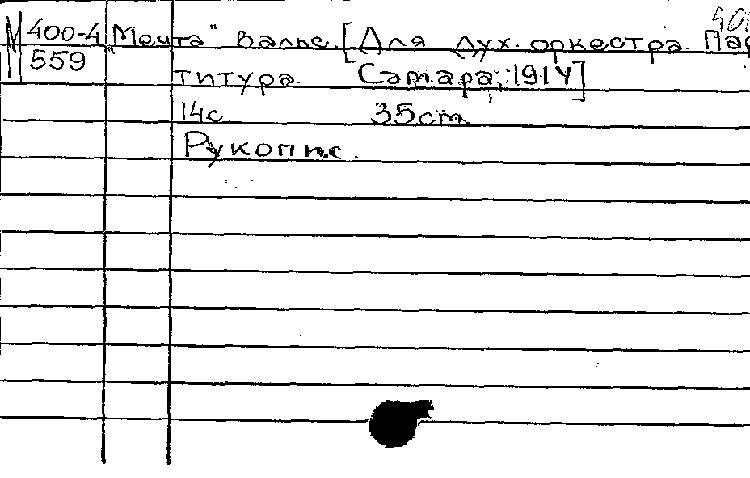 М 400-4 "Мечта" Вальс. [Для дух. оркестра. Пар
559 титура. Самара, 1914]
14с 35cm.
Рукопис.